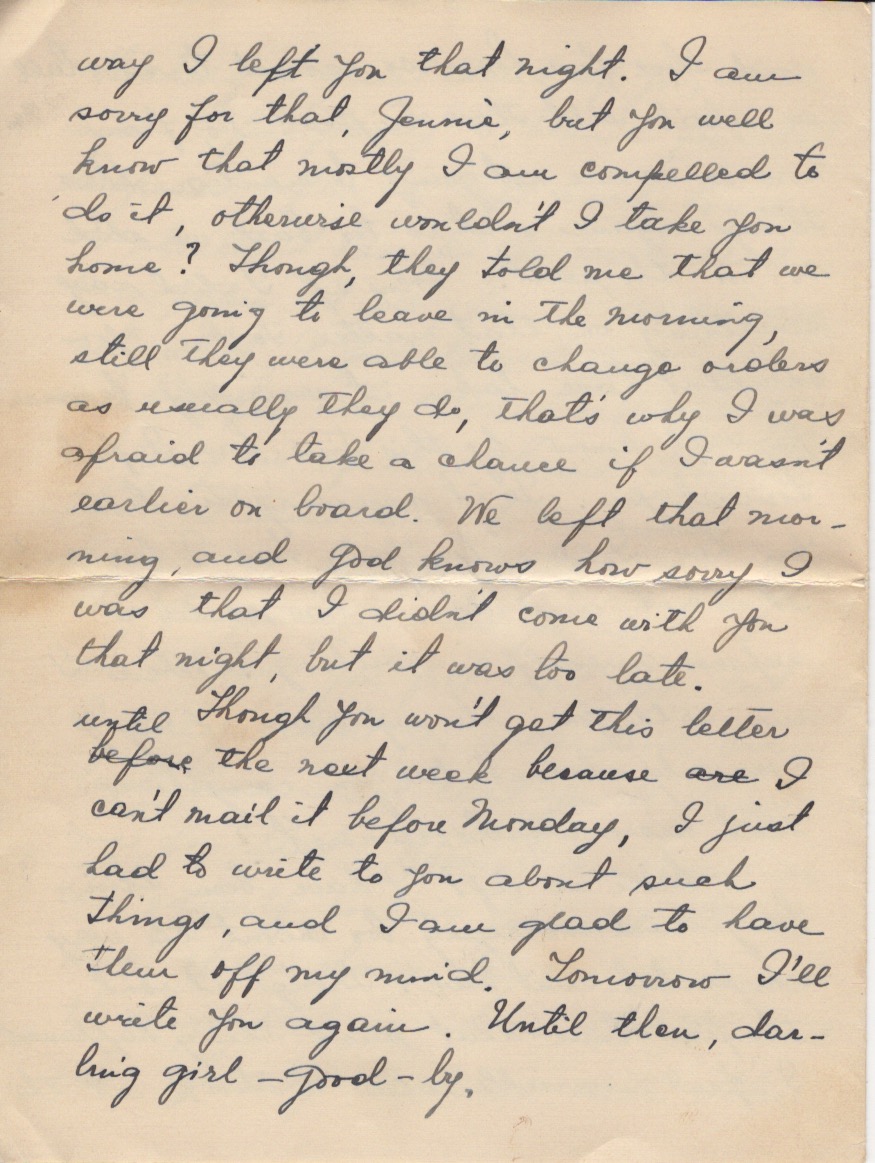 way I left you that night. I am
sorry for that, Jennie, but you well
know that mostly I am compelled to
do it, otherwise wouldn't I take you
home? Though, they told me that we
were going to leave in the morning,
still they were able to change orders
as usually they do, that's why I was
afraid to take a chance if I wasn't
earlier on board. We left that mor-
ning, and God knows how sorry I
was that I didn't come with you
that night, but it was too late.
until Though you won't get this letter
before the next week because are I
can't mail it before Monday, I just
had to write to you about such
things, and I am glad to have
them off my mind. Tomorrow I'll
write you again. Until then, dar-
ling girl - good - by.